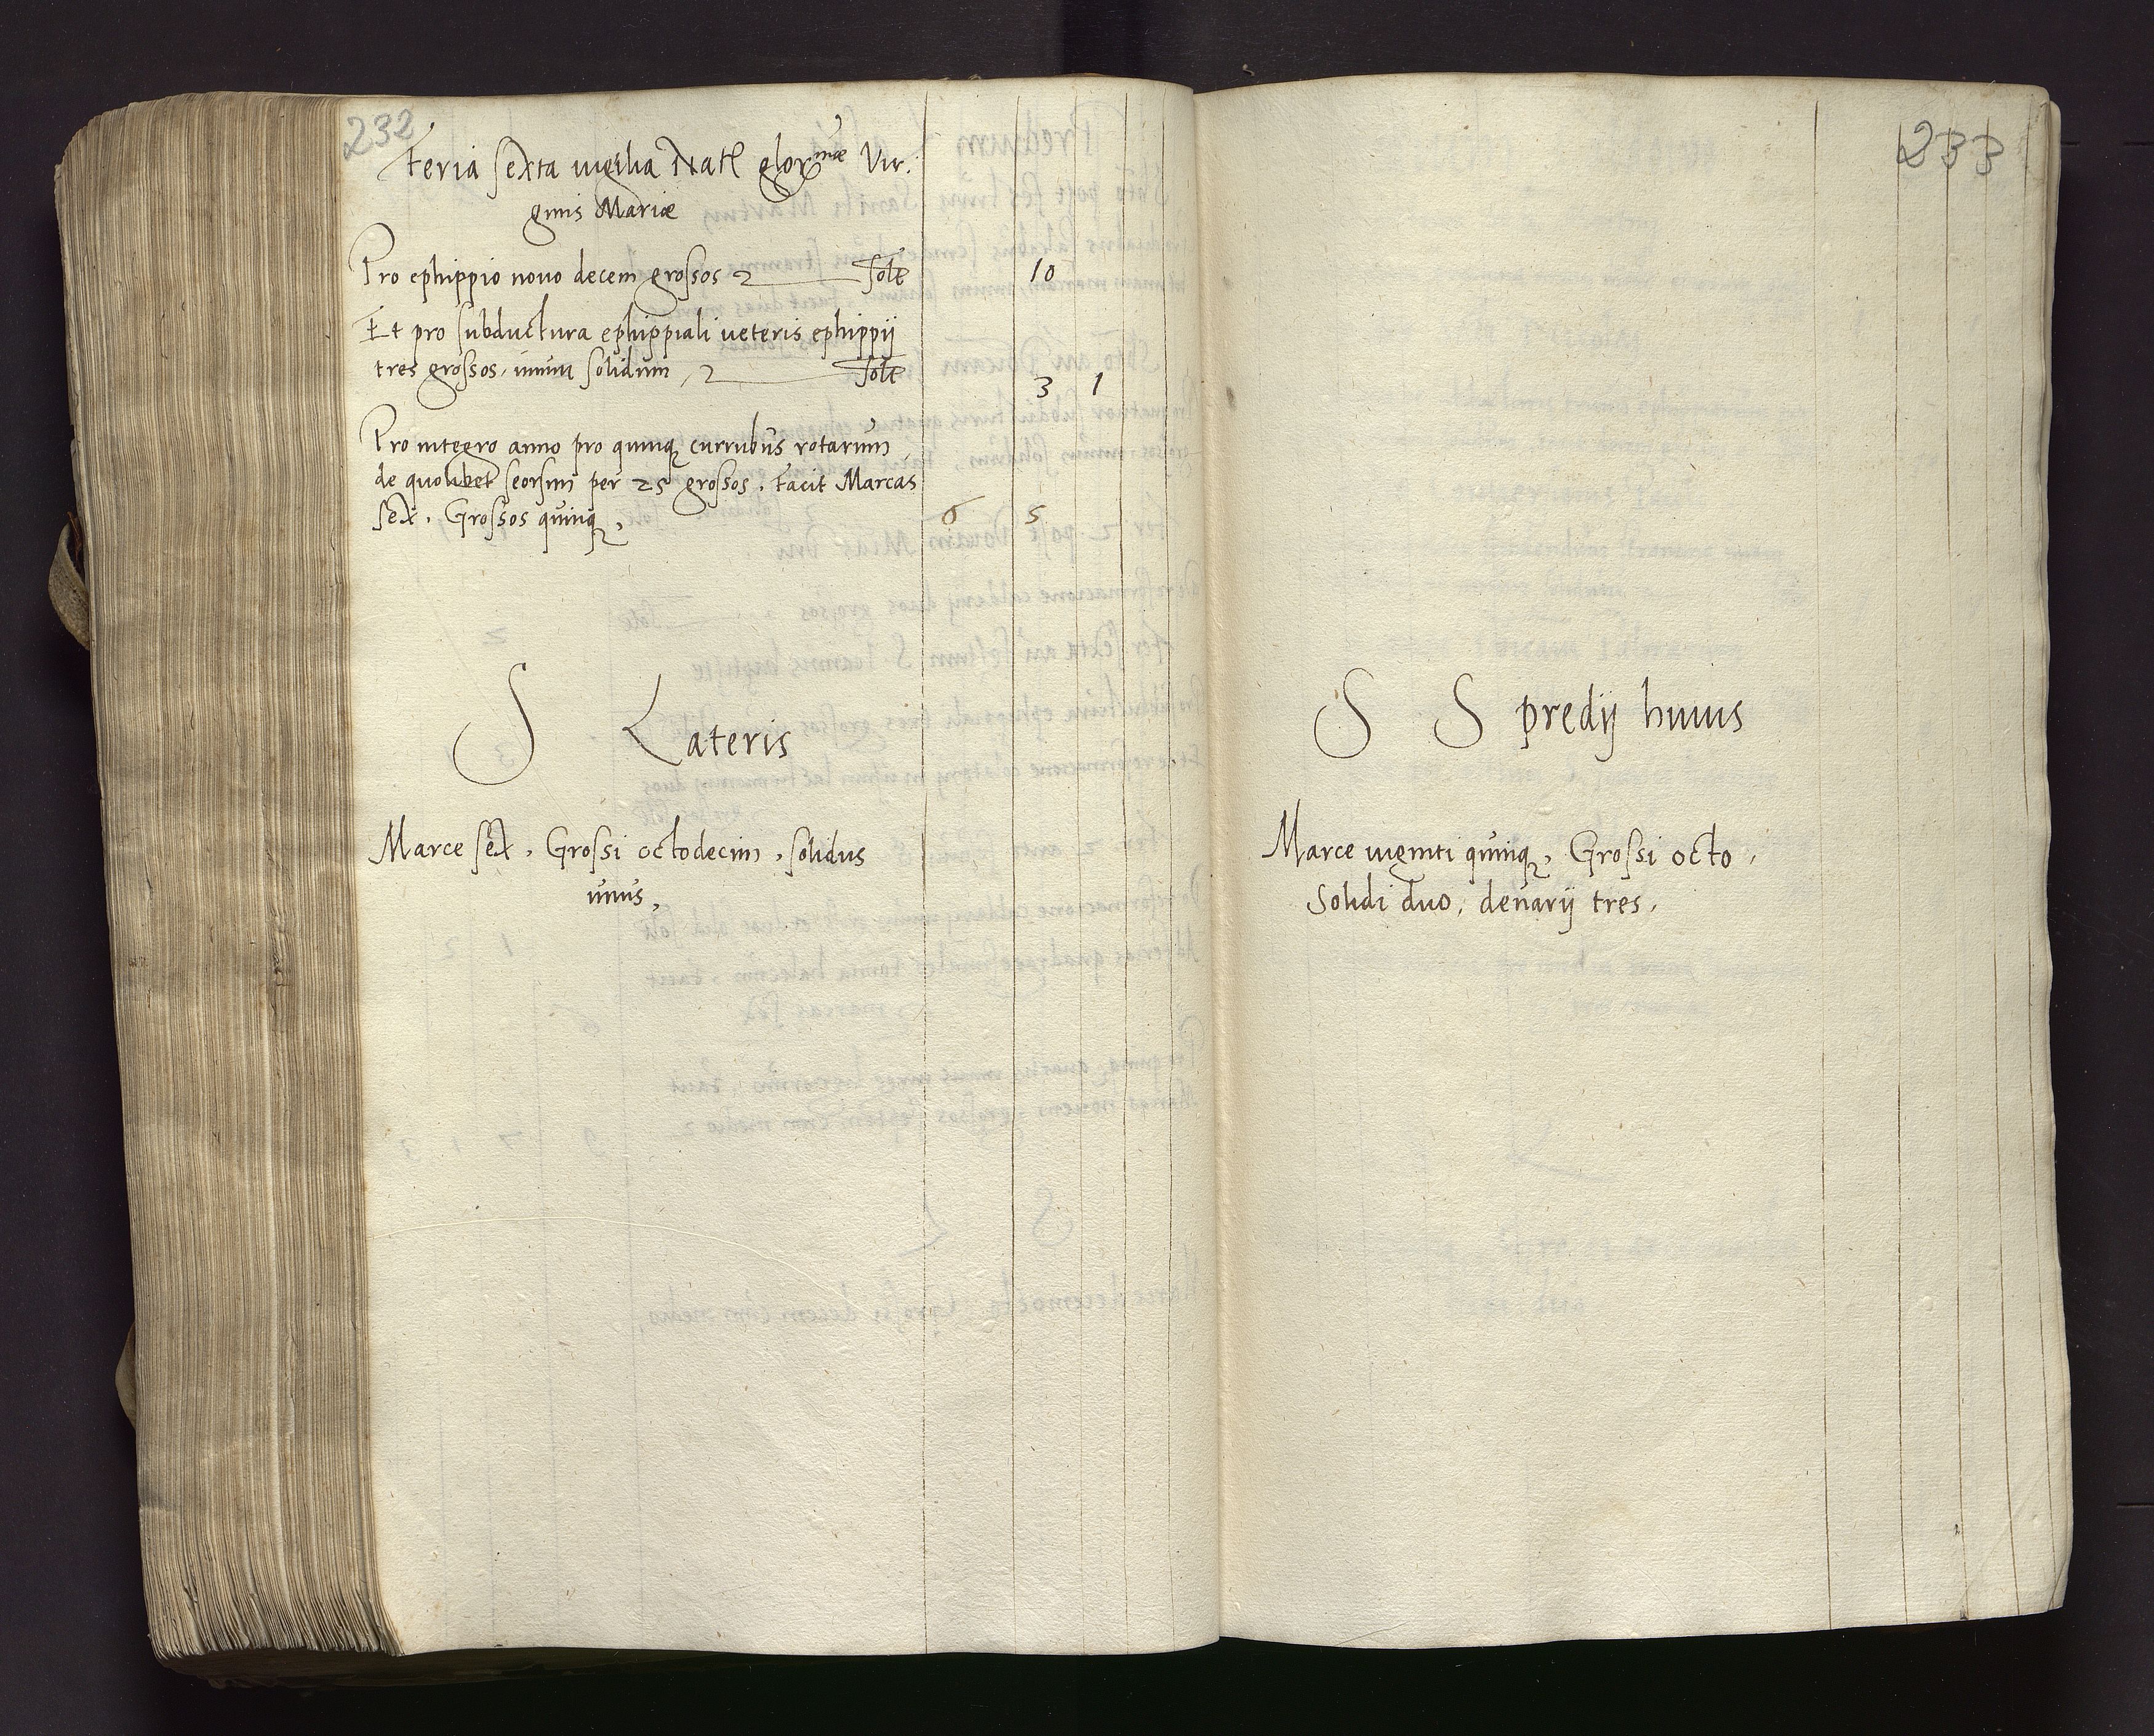 232
Feria sexta vigilia Natl̃ glorᵐᵃᵉ Vir:
ginis Mariæ
Pro ephippio novo decem grossos 2 — solt 10
Et pro subductura ephippiali veteris ephippij
tres grossos, unum solidum, 2 — solt 3 1
Pro integro anno pro quinq; currubus rotarum
de quolibet seorsim per 25 grossos, facit Marcas
sex, Grossos quinq;, 6 5
S Lateris
Marce sex, Grossi octodecim, solidus
unus,
233
S S predij huius
Marce viginti quinq;, Grossi octo,
Solidi duo, denarij tres,